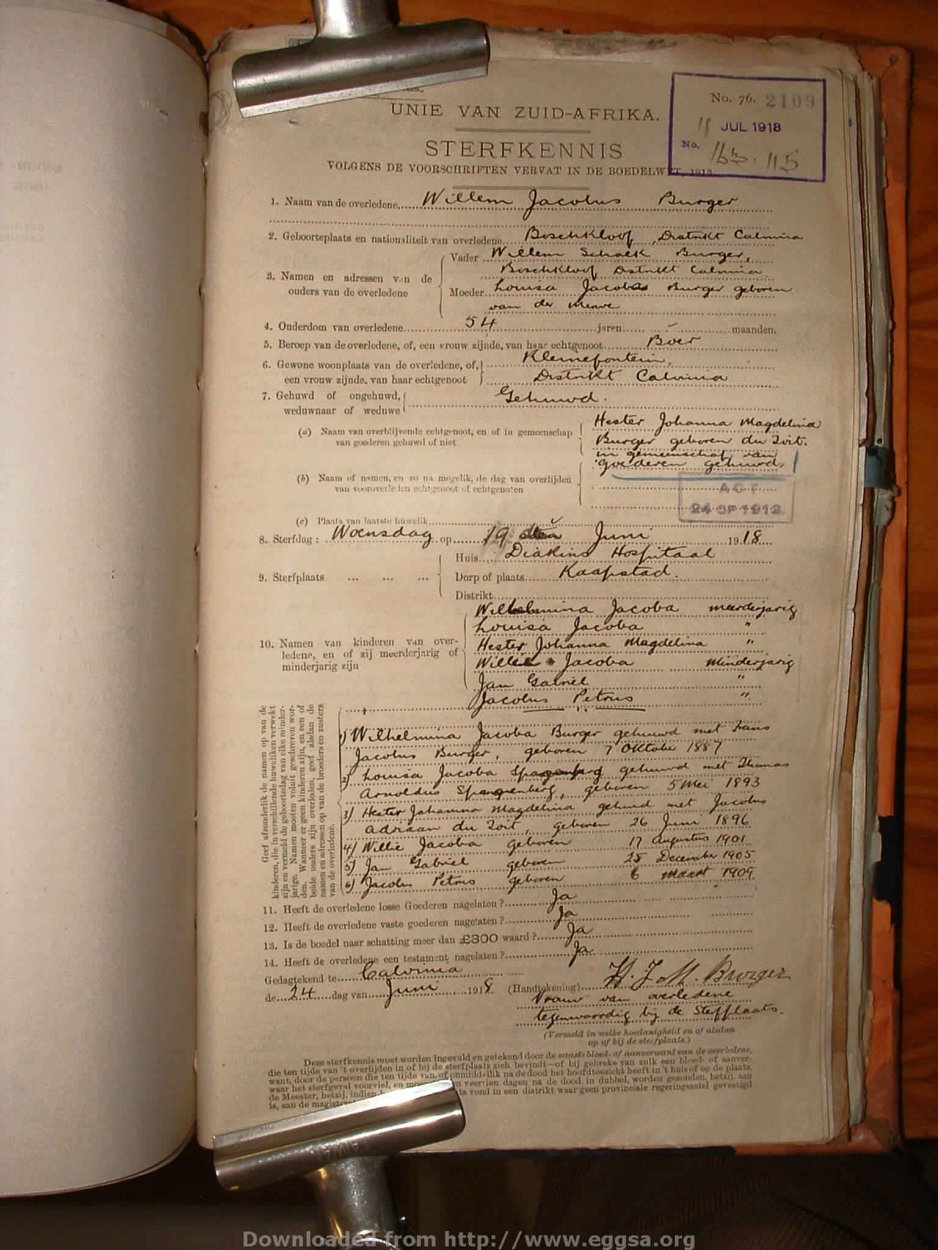 UNIE VAN ZUID-AFRIKA.
No. 76. 2109
18 JUL 1918
No.
STERFKENNIS
VOLGENS DE VOORSCHRIFTEN VERVAT IN DE BOEDELWET, 1913
1. Naam van de overledene Willem Jacobus Burger
2. Geboorteplaats en nationaliteit van overledene Boschkloof, Distrikt Calvinia
3. Namen en adressen van de ouders van de overledene
Vader Willem Schalk Burger,
Boschkloof Distrikt Calvinia
Moeder Louisa Jacoba Burger geboren
van der Merwe
4. Ouderdom van overledene 54 jaren maanden.
5. Beroep van de overledene, of, een vrouw zijnde, van haar echtgenoot Boer
6. Gewone woonplaats van de overledene, of, een vrouw zijnde, van haar echtgenoot
Kleinefontein,
Distrikt Calvinia
7. Gehuwd of ongehuwd, weduwnaar of weduwe Gehuwd.
(a) Naam van overblijvende echtgenoot, en of in gemeenschap van goederen gehuwd of niet
Hester Johanna Magdelina
Burger geboren du Toit.
in gemeenschap van
goederen gehuwd,
(b) Naam of namen, en zo na mogelijk, de dag van overlijden van vooroverleden echtgenoot of echtgenoten
ACT
24 OF 1913.
(c) Plaats van laatste huwelik
8. Sterfdag: Woensdag op 19 den Juni 1918
9. Sterfplaats ... ... ...
Huis Diakins Hospitaal
Dorp of plaats Kaapstad.
Distrikt
10. Namen van kinderen van overledene, en of zij meerderjarig of minderjarig zijn
Wilhelmina Jacoba meerderjarig
Louisa Jacoba "
Hester Johanna Magdelina "
Willie Jacoba Minderjarig
Jan Gabriel "
Jacobus Petrus "
Geef afzonderlik de namen op van de kinderen, die in verschillende huweliken verwekt zijn en vermeld de geboortedag van elke minderjarige. Namen moeten voluit geschreven worden. Wanneer er geen kinderen zijn, en een of beide ouders zijn overleden, geef alsdan de namen en adressen op van de broeders en zusters van de overledene.
1) Wilhelmina Jacoba Burger gehuwd met Hans
Jacobus Burger, geboren 7 Oktober 1887
2) Louisa Jacoba Spangenberg gehuwd met Thomas
Arnoldus Spangenberg, geboren 5 Mei 1893
3) Hester Johanna Magdelina gehuwd met Jacobus
Adriaan du Toit, geboren 26 Juni 1896
4) Willie Jacoba geboren 17 Augustus 1901
5) Jan Gabriel geboren 25 December 1905
6) Jacobus Petrus geboren 6 Maart 1909
11. Heeft de overledene losse Goederen nagelaten? Ja
12. Heeft de overledene vaste goederen nagelaten? Ja
13. Is de boedel naar schatting meer dan £300 waard? Ja
14. Heeft de overledene een testament nagelaten? Ja
Gedagtekend te Calvinia
de 24 dag van Juni 1918 (Handtekening) H. J. M. Burger
Vrouw van overledene
tegenwoordig bij de Sterfplaats.
(Vermeld in welke hoedanigheid en of alsdan
op of bij de sterfplaats.)
Deze sterfkennis moet worden ingevuld en getekend door de naaste bloed- of aanverwant van de overledene,
die ten tijde van 't overlijden in of bij de sterfplaats zich bevindt—of bij gebreke van zulk een bloed- of aanverwant,
door de persoon die ten tijde van, of onmiddellik na de dood het hoofdtoezicht heeft in 't huis of op de plaats,
waar het sterfgeval voorviel, en veertien dagen na de dood, in dubbel, worden gezonden, hetzij aan
de Meester, hetzij, indien vond in een distrikt waar geen provinciale regeringszetel gevestigd
is, aan de
Downloaded from http://www.eggsa.org